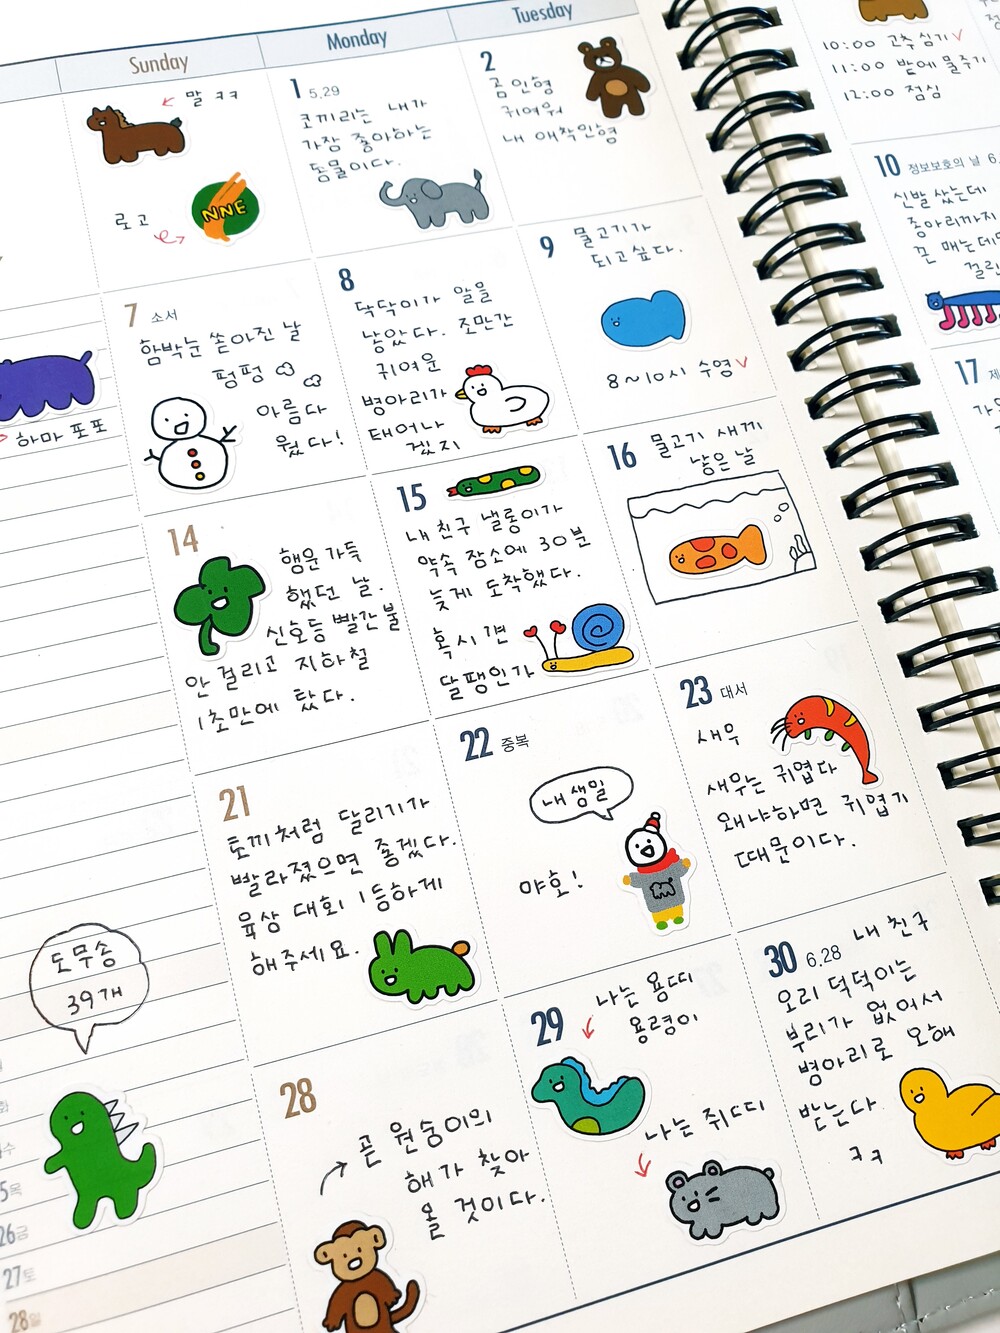 Sunday
Monday
Tuesday
말 ㅋㅋ
로고
NNE
1 5.29
코끼리는 내가
가장 좋아하는
동물이다.
2
곰인형
귀여워
내 애착인형
10:00 고추심기
11:00 밭에 물주기
12:00 점심
7 소서
함박눈 쏟아진 날
펑펑
아름다
웠다!
8
닥닥이가 알을
낳았다. 조만간
귀여운
병아리가
태어나
겠지
9
물고기가
되고싶다.
8~10시 수영
10 정보보호의 날 6.
신발 샀는데
종아리까지
끈 매는데
걸린
하마 포포
14
행운가득
했던 날.
신호등 빨간불
안 걸리고 지하철
1초만에 탔다.
15
내 친구 낼롱이가
약속 장소에 30분
늦게 도착했다.
혹시 걘
달팽인가
16
물고기 새끼
낳은 날
17
21
토끼처럼 달리기가
빨라졌으면 좋겠다.
육상 대회 1등하게
해주세요.
22 중복
내 생일
야호!
23 대서
새우
새우는 귀엽다
왜냐하면 귀엽기
때문이다.
도무송
39개
28
곧 원숭이의
해가 찾아
올 것이다.
29
나는 용띠
용령이
나는 쥐띠
30 6.28
내 친구
오리 덕덕이는
부리가 없어서
병아리로 오해
받는다
ㅋㅋ
26금
27토
28일